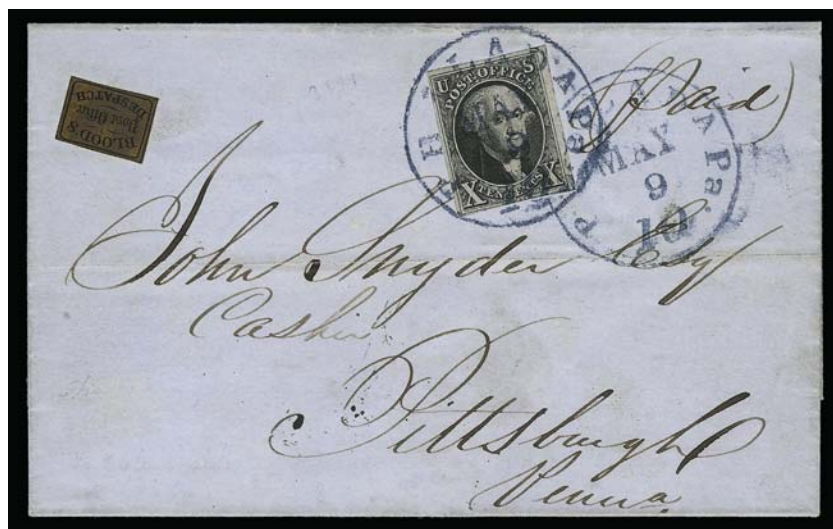 BLOOD'S
Post Office
DESPATCH
U S
POST OFFICE
X TEN CENTS X
(Paid)
MAY
9
10
Pa.
John Snyder Esq
Cashier
Pittsburgh
Penna